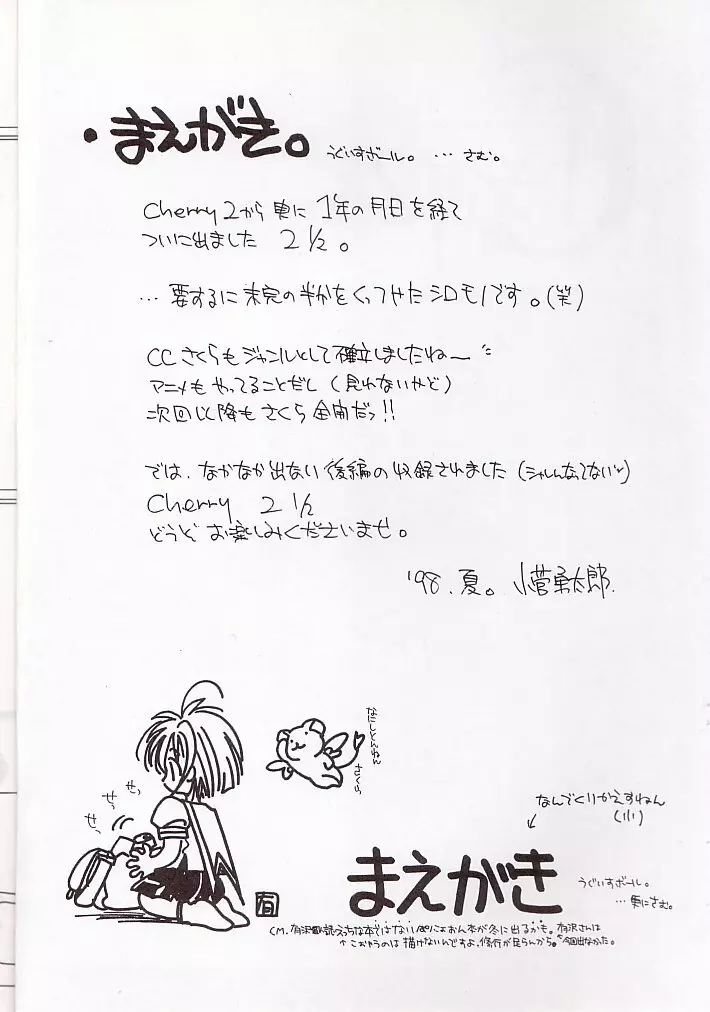 ・まえがき。 うぐいすボール。 … さむ。
Cherry 2から更に 1年の月日を経て
ついに出ました 2 1/2。
… 要するに未完の半かをくっつけたシロモノです。(笑)
CCさくらもジャンルとして確立しましたね〜
アニメもやってることだし (見れないけど)
次回以降もさくら全開だッ!!
では、なかなか出ない後編の収録されました (シャレんなってないっ)
Cherry 2 1/2
どうぞ お楽しみくださいませ。
'98.夏。 小菅勇太郎.
なにしとんねん
さくら
せっ
せっ
せっ
なんでくりかえすねん
(小)
↙
まえがき うぐいすボール。
… 更にさむ。
有
CM. 有沢 読 えっちな本ではない ぱにょおん本が冬に出るかも。有沢さんは
↑こおゆうのは描けないんですよ、修行が足らんから。 今回出なかた。